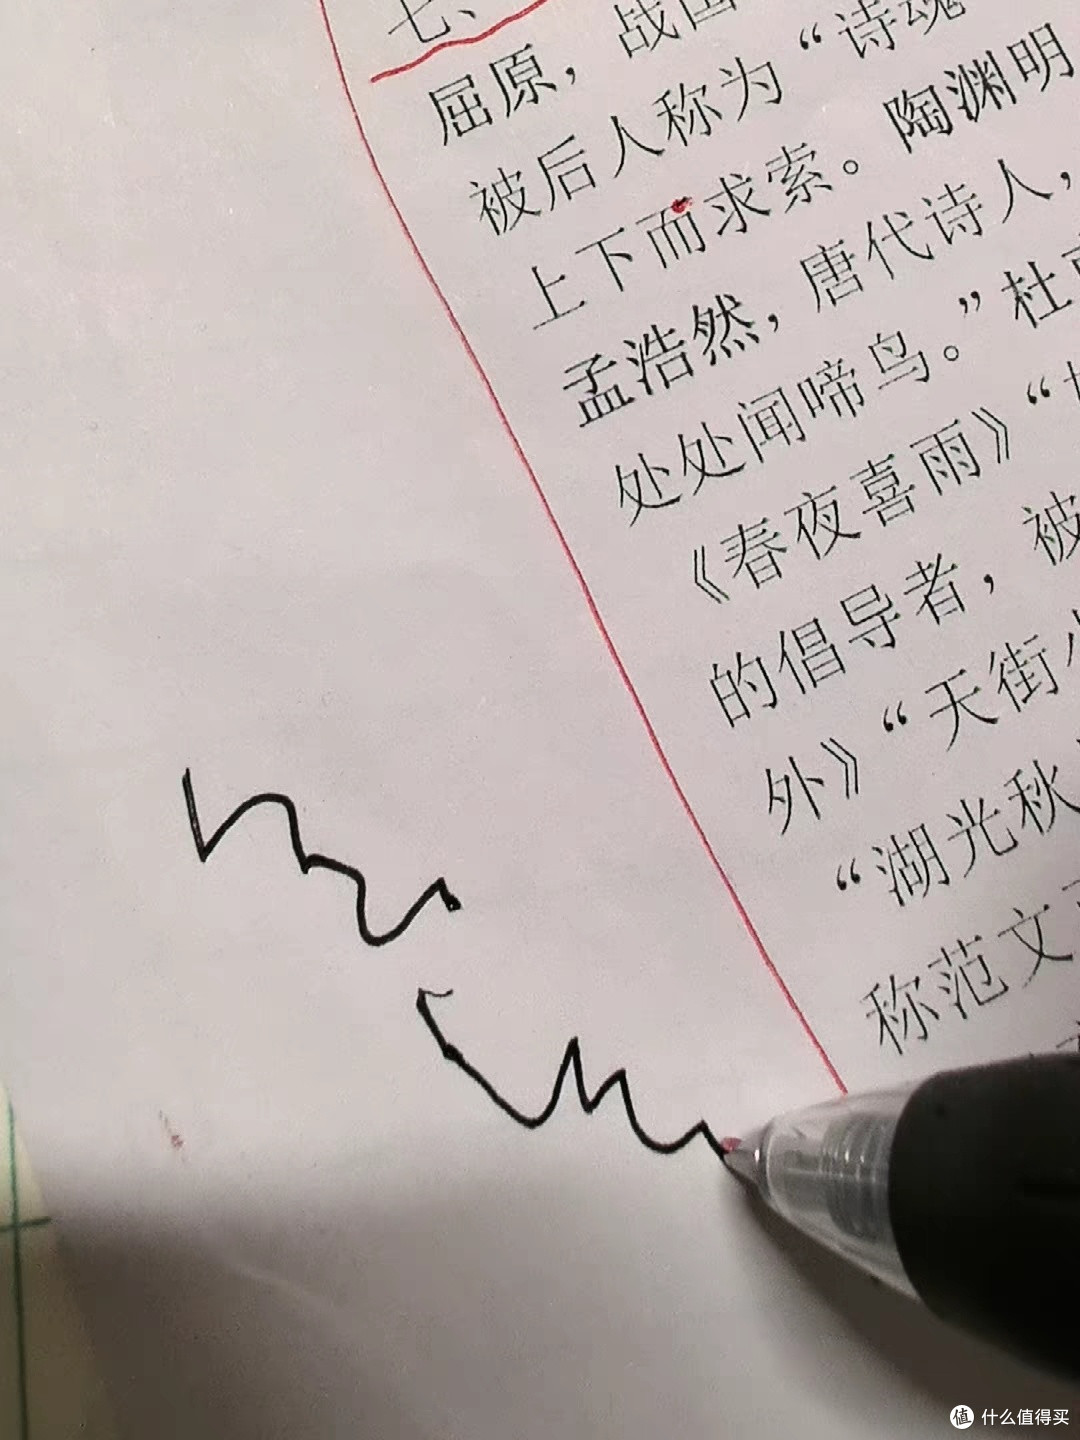 七、
屈原，战国
被后人称为“诗魂
上下而求索。陶渊明
孟浩然，唐代诗人，
处处闻啼鸟。”杜
《春夜喜雨》“
的倡导者，被
外》“天街
“湖光秋
称范文
值 什么值得买